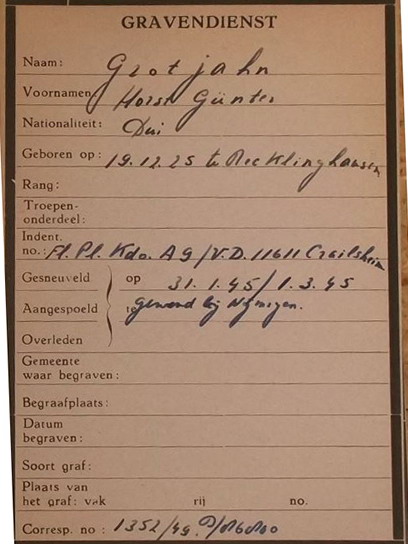 GRAVENDIENST
Naam: Grotjahn
Voornamen: Horst Günter
Nationaliteit: Dui
Geboren op: 19.12.25 te Recklinghausen
Rang:
Troepen-
onderdeel:
Indent.
no.: Fl. Pl. Kdo. A 9/V.D. 11611 Crailsheim
Gesneuveld op 31.1.45/1.3.45
Aangespoeld te gewond bij Nijmegen.
Overleden
Gemeente
waar begraven:
Begraafplaats:
Datum
begraven:
Soort graf:
Plaats van
het graf: vak rij no.
Corresp. no: 1352/49.